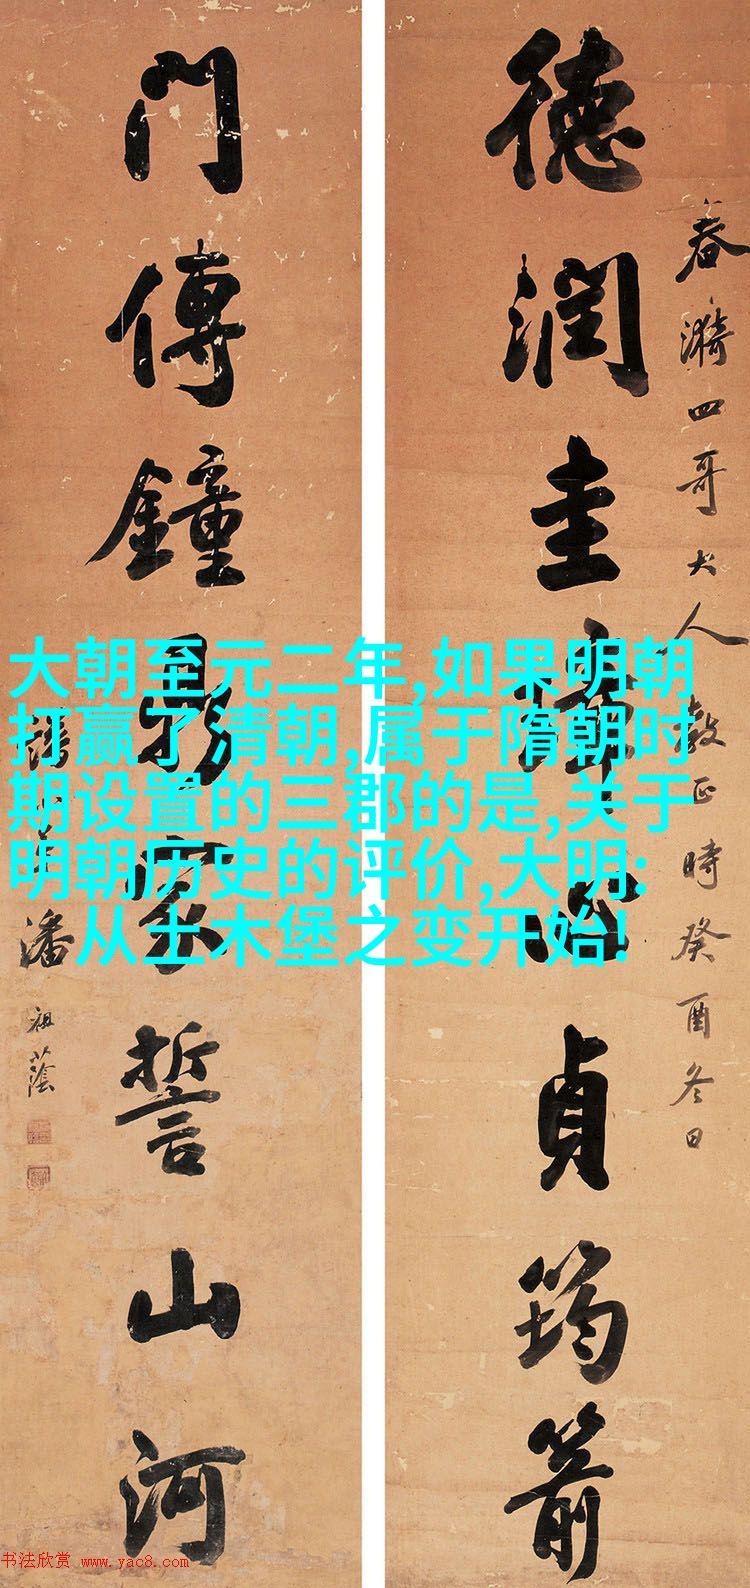 春漪四哥大人教正時癸酉冬日
德潤圭璋心貞筠箭
門傳鐘鼎家誓山河
潘祖蔭
大朝至元二年,如果明朝
打赢了清朝,属于隋朝时
期设置的三郡的是,关于
明朝历史的评价,大明:
从土木堡之变开始!
书法欣赏 www.yac8.com